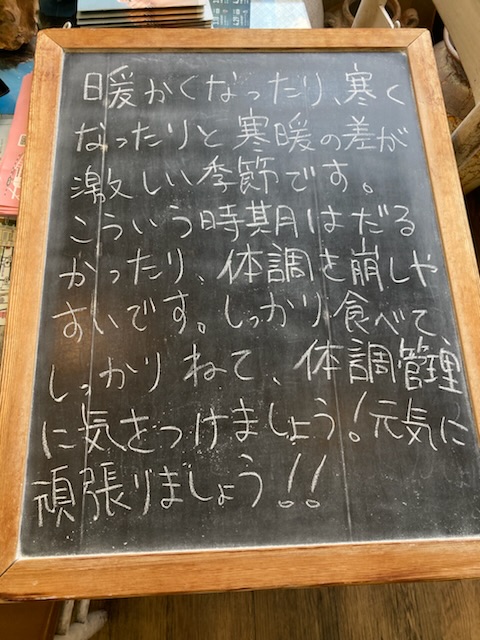 暖かくなったり、寒く
なったりと寒暖の差が
激しい季節です。
こういう時期はだる
かったり、体調を崩しや
すいです。しっかり食べて
しっかりねて、体調管理
に気をつけましょう!元気に
頑張りましょう!!